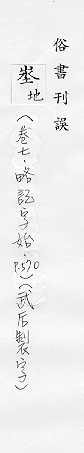 俗書刊誤
埊地(卷七·略記字始·P.570)(武后製字)